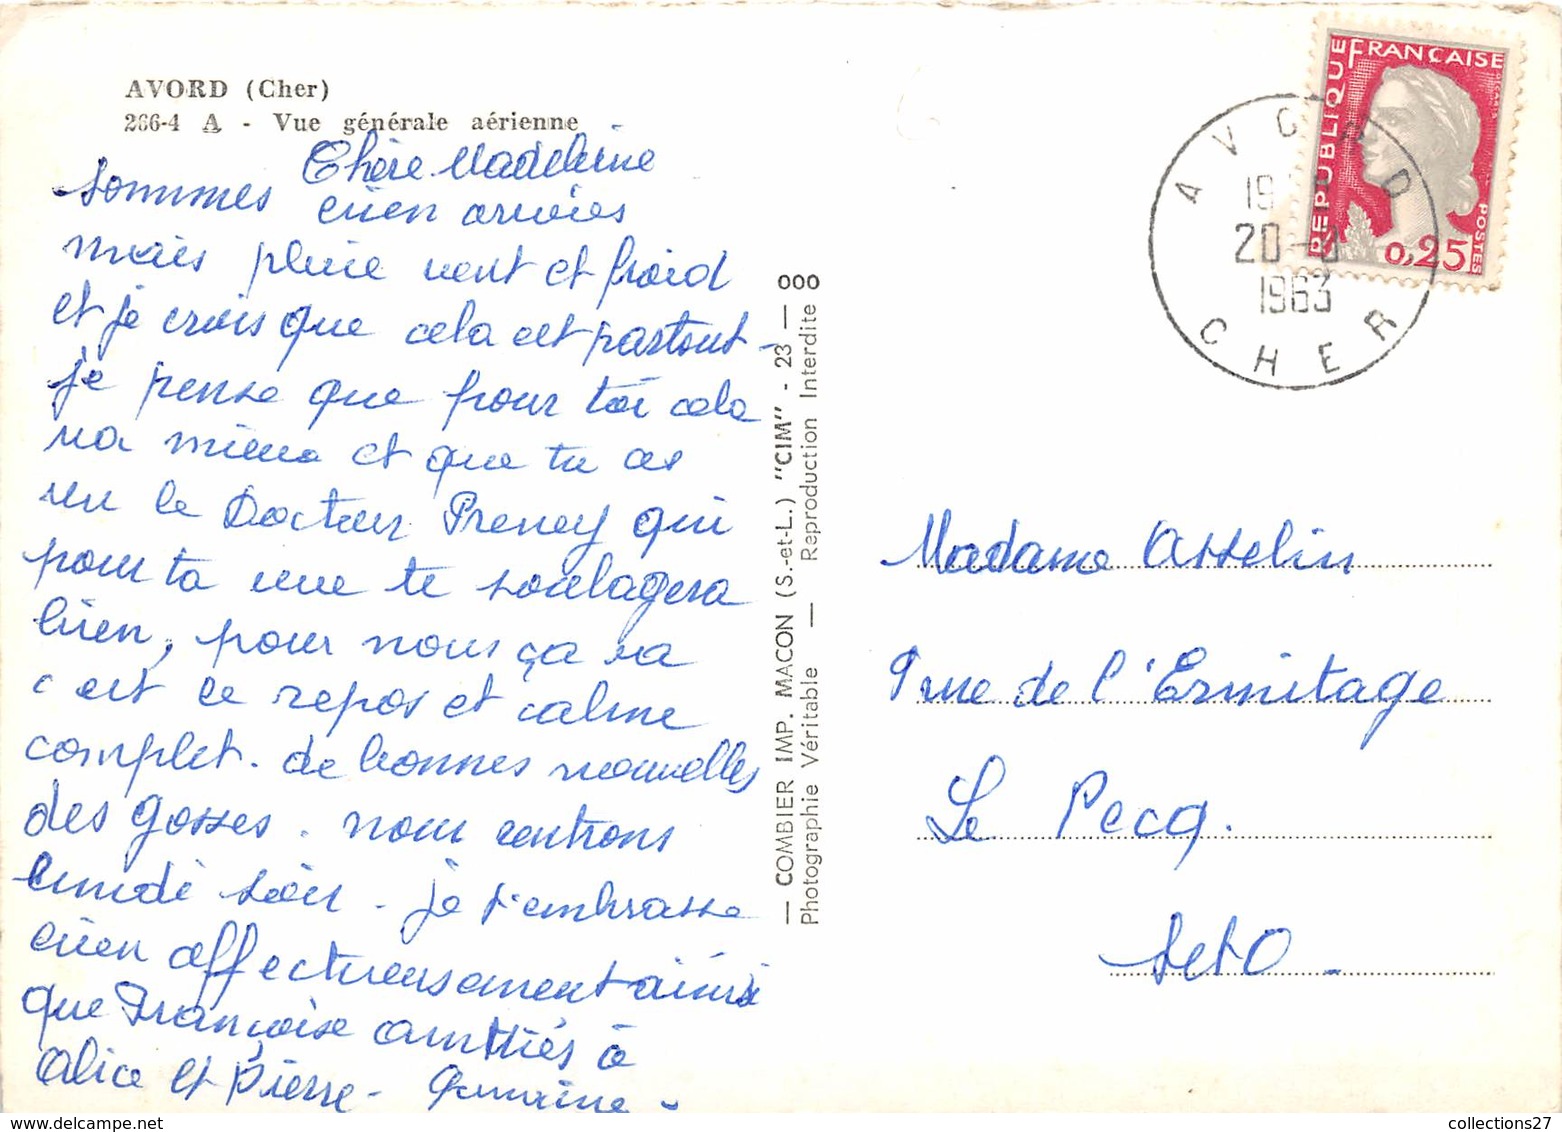 AVORD (Cher)
266-4 A - Vue générale aérienne
Chère Madeleine
sommes bien arrivées
mais pluie vent et froid
et je crois que cela est partout -
je pense que pour toi cela
va mieux et que tu as
vu le Docteur Preney qui
pour ta vue te soulagera
bien, pour nous ça va
c'est le repos et calme
complet. de bonnes nouvelles
des gosses. nous rentrons
lundi soir - je t'embrasse
bien affectueusement ainsi
que Françoise amitiés à
Alice et Pierre -
— COMBIER IMP. MACON (S.-et-L.) "CIM" - 23 — 000
Photographie Véritable — Reproduction Interdite
REPUBLIQUE FRANÇAISE
POSTES
0,25
AVORD
20-
1963
CHER
Madame Asselin
rue de l'Ermitage
Le Pecq.
S et O -
www.collections27